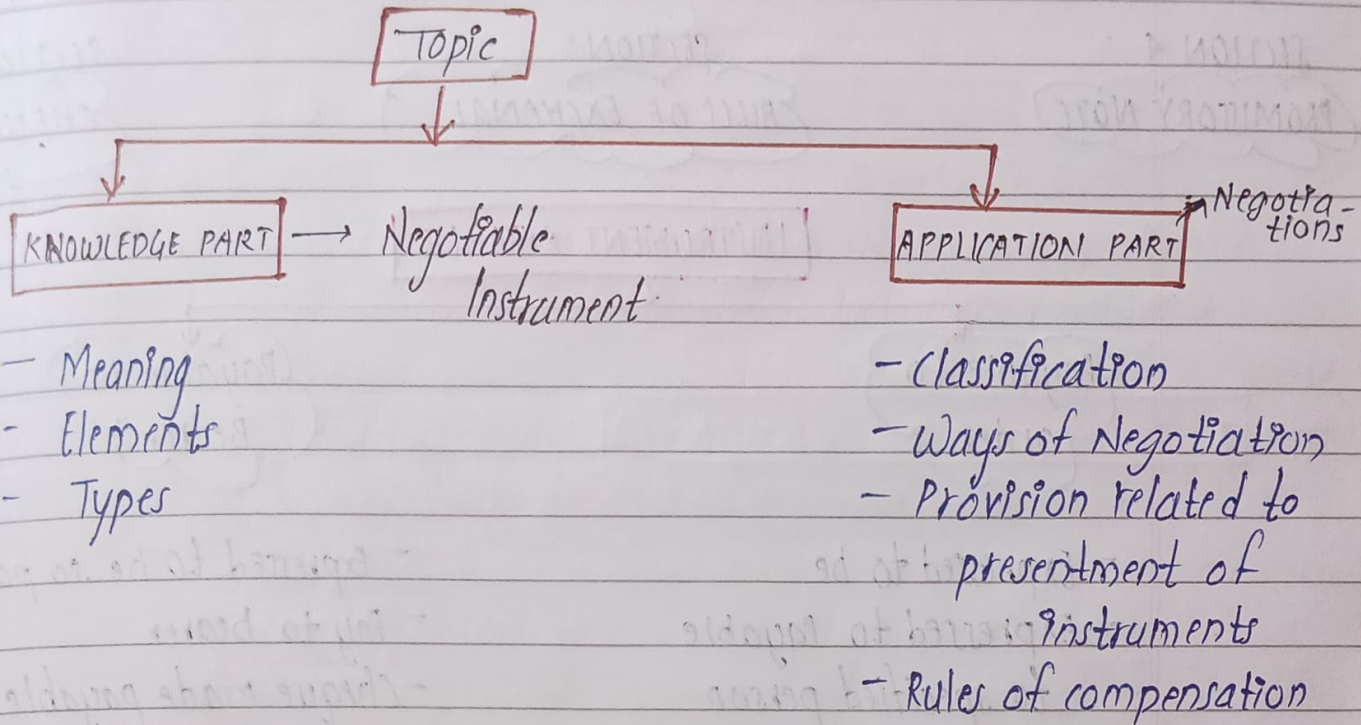 Topic
KNOWLEDGE PART → Negotiable
Instrument
APPLICATION PART
Negotia-
tions
- Meaning
- Elements
- Types
- Classification
- Ways of Negotiation
- Provision related to
presentment of
instruments
- Rules of compensation